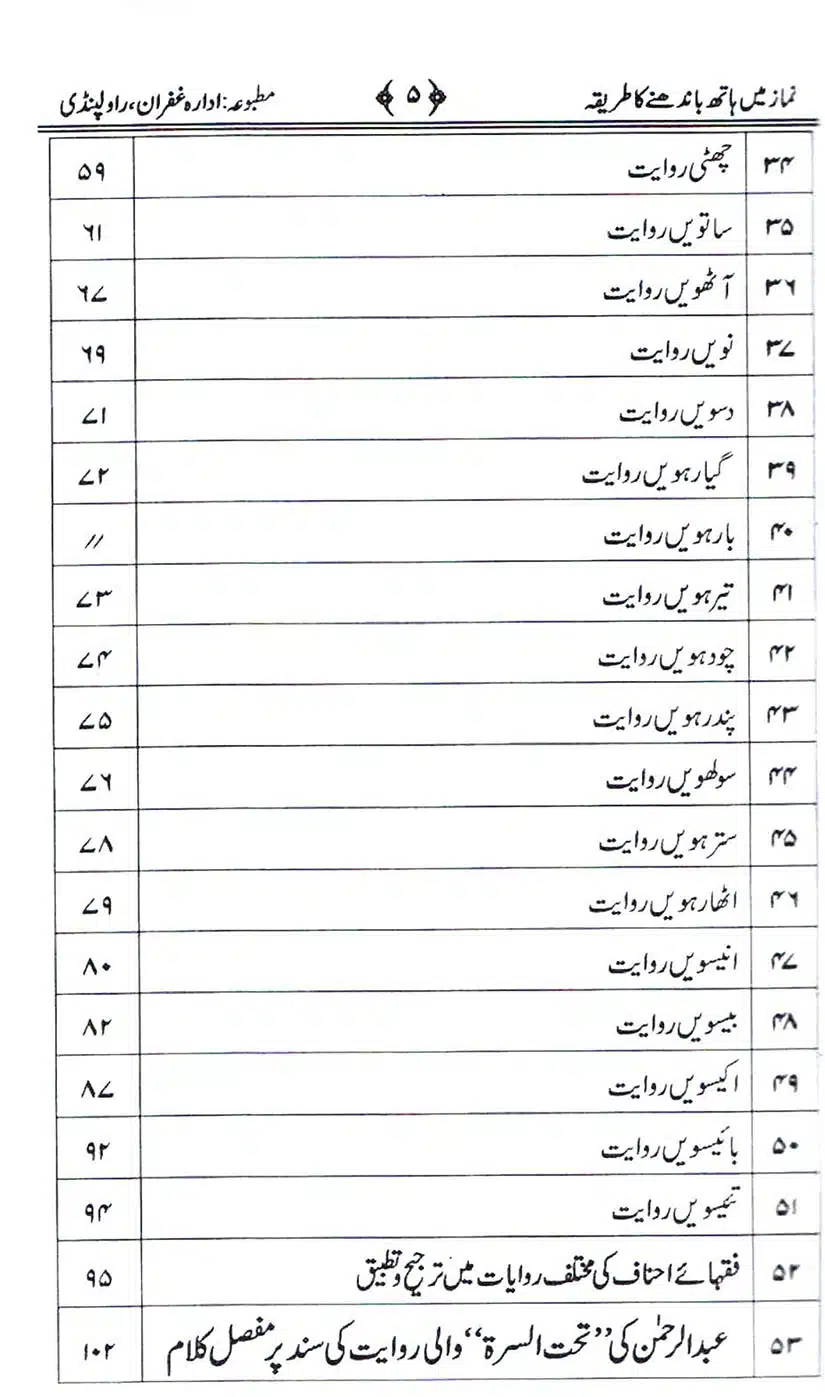 نماز میں ہاتھ باندھنے کا طریقہ ﴿۵﴾ مطبوعہ: ادارہ غفران، راولپنڈی
۳۴ چھٹی روایت ۵۹
۳۵ ساتویں روایت ۶۱
۳۶ آٹھویں روایت ۶۷
۳۷ نویں روایت ۶۹
۳۸ دسویں روایت ۷۱
۳۹ گیارہویں روایت ۷۲
۴۰ بارہویں روایت //
۴۱ تیرہویں روایت ۷۳
۴۲ چودہویں روایت ۷۴
۴۳ پندرہویں روایت ۷۵
۴۴ سولھویں روایت ۷۶
۴۵ سترہویں روایت ۷۸
۴۶ اٹھارہویں روایت ۷۹
۴۷ انیسویں روایت ۸۰
۴۸ بیسویں روایت ۸۲
۴۹ اکیسویں روایت ۸۷
۵۰ بائیسویں روایت ۹۲
۵۱ تئیسویں روایت ۹۴
۵۲ فقہائے احناف کی مختلف روایات میں ترجیح و تطبیق ۹۵
۵۳ عبدالرحمٰن کی ’’تحت السرۃ‘‘ والی روایت کی سند پر مفصل کلام ۱۰۲